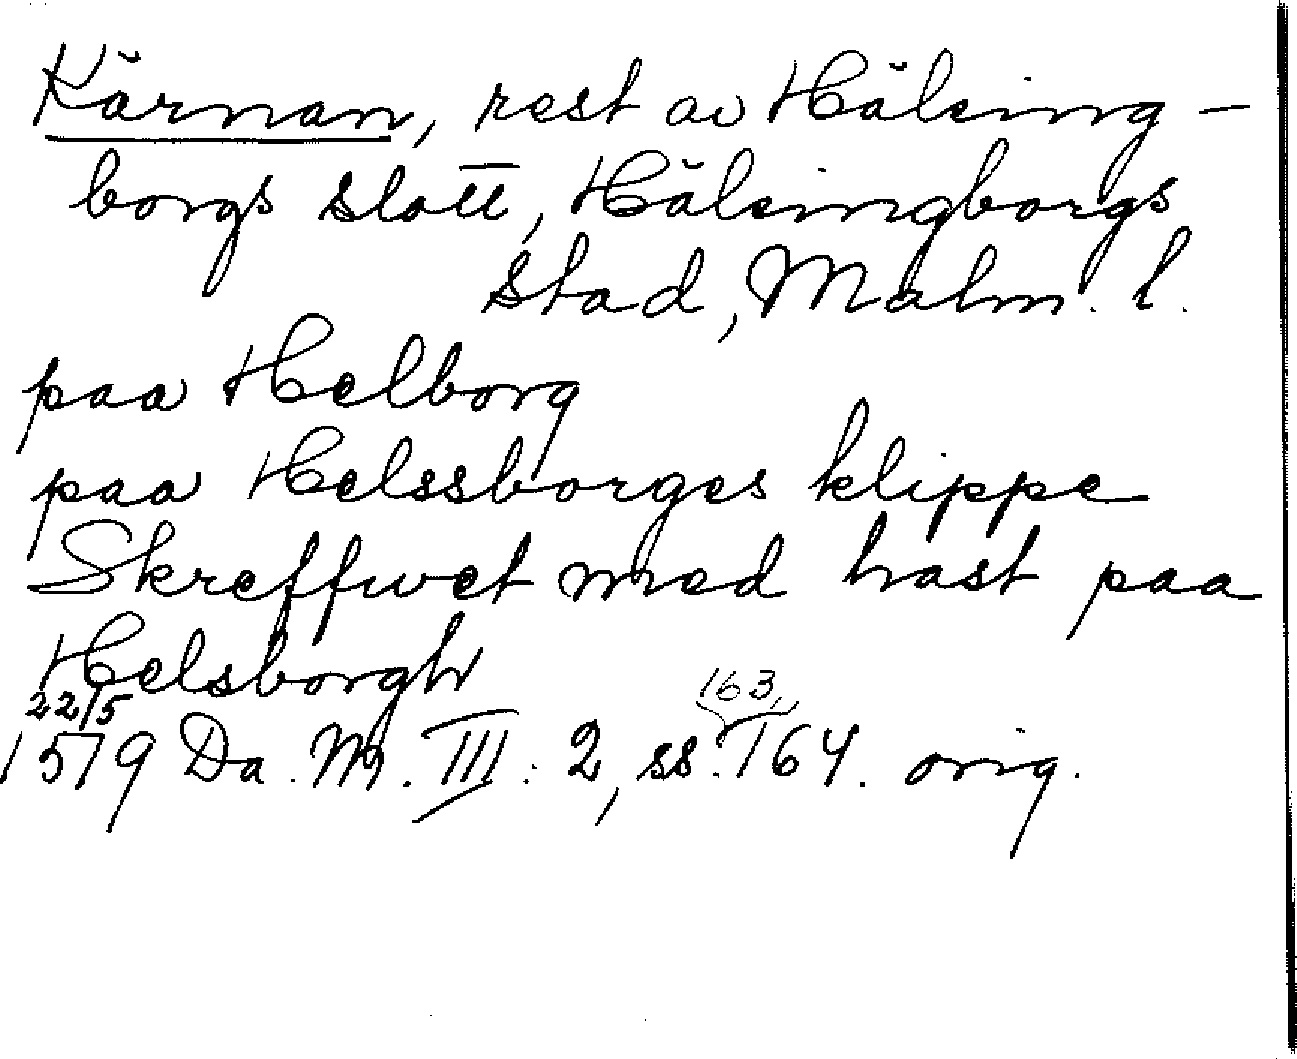 Kärnan, rest av Hälsing-
borgs slott, Hälsingborgs
stad, Malm. l.
paa Helborg
paa Helssborges klippe
Skreffwet med hast paa
Helsborgh
22/5 163,
1579 Da. M. III. 2, ss. 164. orig.